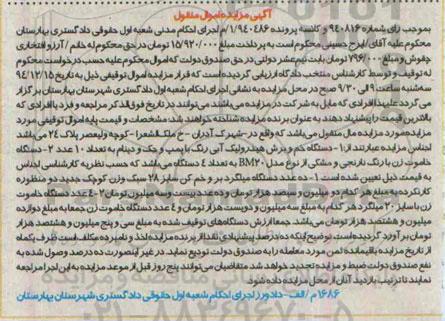 آگهی مزایده اموال منقول
بموجب رای شماره ۹۴۰۸۱۶ و کلاسه پرونده ۱/۹۴۰۴۸۶/م اجرای احکام مدنی شعبه اول حقوقی دادگستری بهارستان
محکوم علیه آقای ایرج حسینی محکوم است به پرداخت مبلغ ۱۵/۹۲۰/۰۰۰ تومان در حق محکوم له خانم / آرزو افتخاری
چقوش و مبلغ ۷۹۶/۰۰۰ تومان بابت نیم عشر دولتی در حق صندوق دولت که اموال محکوم علیه حسب درخواست محکوم
له توقیف و توسط کارشناس منتخب دادگاه ارزیابی گردیده است که قرار مزایده اموال توقیفی ذیل به تاریخ ۹۴/۱۲/۱۵
سه شنبه ساعت ۹ الی ۹/۳۰ صبح در محل مزایده به نشانی اجرای احکام شعبه اول دادگستری شهرستان بهارستان برگزار
می گردد علیهذا افرادی که مایل به شرکت در مزایده می باشند می توانند در تاریخ فوق الذکر مراجعه و فرد یا افرادی که
بالاترین قیمت را پیشنهاد دهند به عنوان برنده مزایده شناخته خواهند شد: مشخصات و قیمت پایه اموال توقیفی مورد
مزایده: مورد مزایده مال منقول می باشد که واقع در-شهرک آدران - خ ملک الشعرا - کوچه ولیعصر پلاک ۲۴ می باشد
اجناس مزایده عبارتند از: ۱- دستگاه خم و برش هیدرولیک آبی رنگ با پمپ و جک و دینام به تعداد ۱۰ عدد ۲- دستگاه
خاموت زن با رنگ نارنجی و مشکی از نوع مدل BM۲۰ به تعداد ۴ دستگاه می باشد که حسب نظریه کارشناسی اجناس
به قیمت ذیل تعیین شده است ۱- ده عدد دستگاه میلگرد بر و خم کن سایز ۲۸ سبک وزن کوچک جدید دو منظوره
کارنکرده به مبلغ هر کدام دو میلیون و سیصد هزار تومان و ده عدد بیست و سه میلیون تومان ۲- ۴ عدد دستگاه خاموت
زن با سایز ۲۰ میلگرد هر کدام به مبلغ سه میلیون و دویست هزار تومان و ۴ عدد دستگاه خاموت زن جمعا به مبلغ دوازده
میلیون و هشتصد هزار تومان می باشد. جمعا ارزش دستگاه‌های توقیف شده به مبلغ سی و پنج میلیون و هشتصد هزار
تومان برآورد گردیده است. توضیح اینکه ده درصد پیشنهادی نقدا از برنده مزایده اخذ و نامبرده مکلف است ظرف یکماه
از تاریخ مزایده باقیمانده ثمن مورد معامله را به صندوق دولت تودیع نماید. در غیر اینصورت ده درصد وصول شده به
نفع صندوق دولت ضبط و مزایده تجدید خواهد شد. متقاضیان می توانند پنج روز قبل از موعد مزایده به این اجرا مراجعه
نمایند تا ترتیب بازدید آنان از محل مزایده داده شود.
۱۶۸۶ م / الف - دادورز اجرای احکام شعبه اول حقوقی دادگستری شهرستان بهارستان